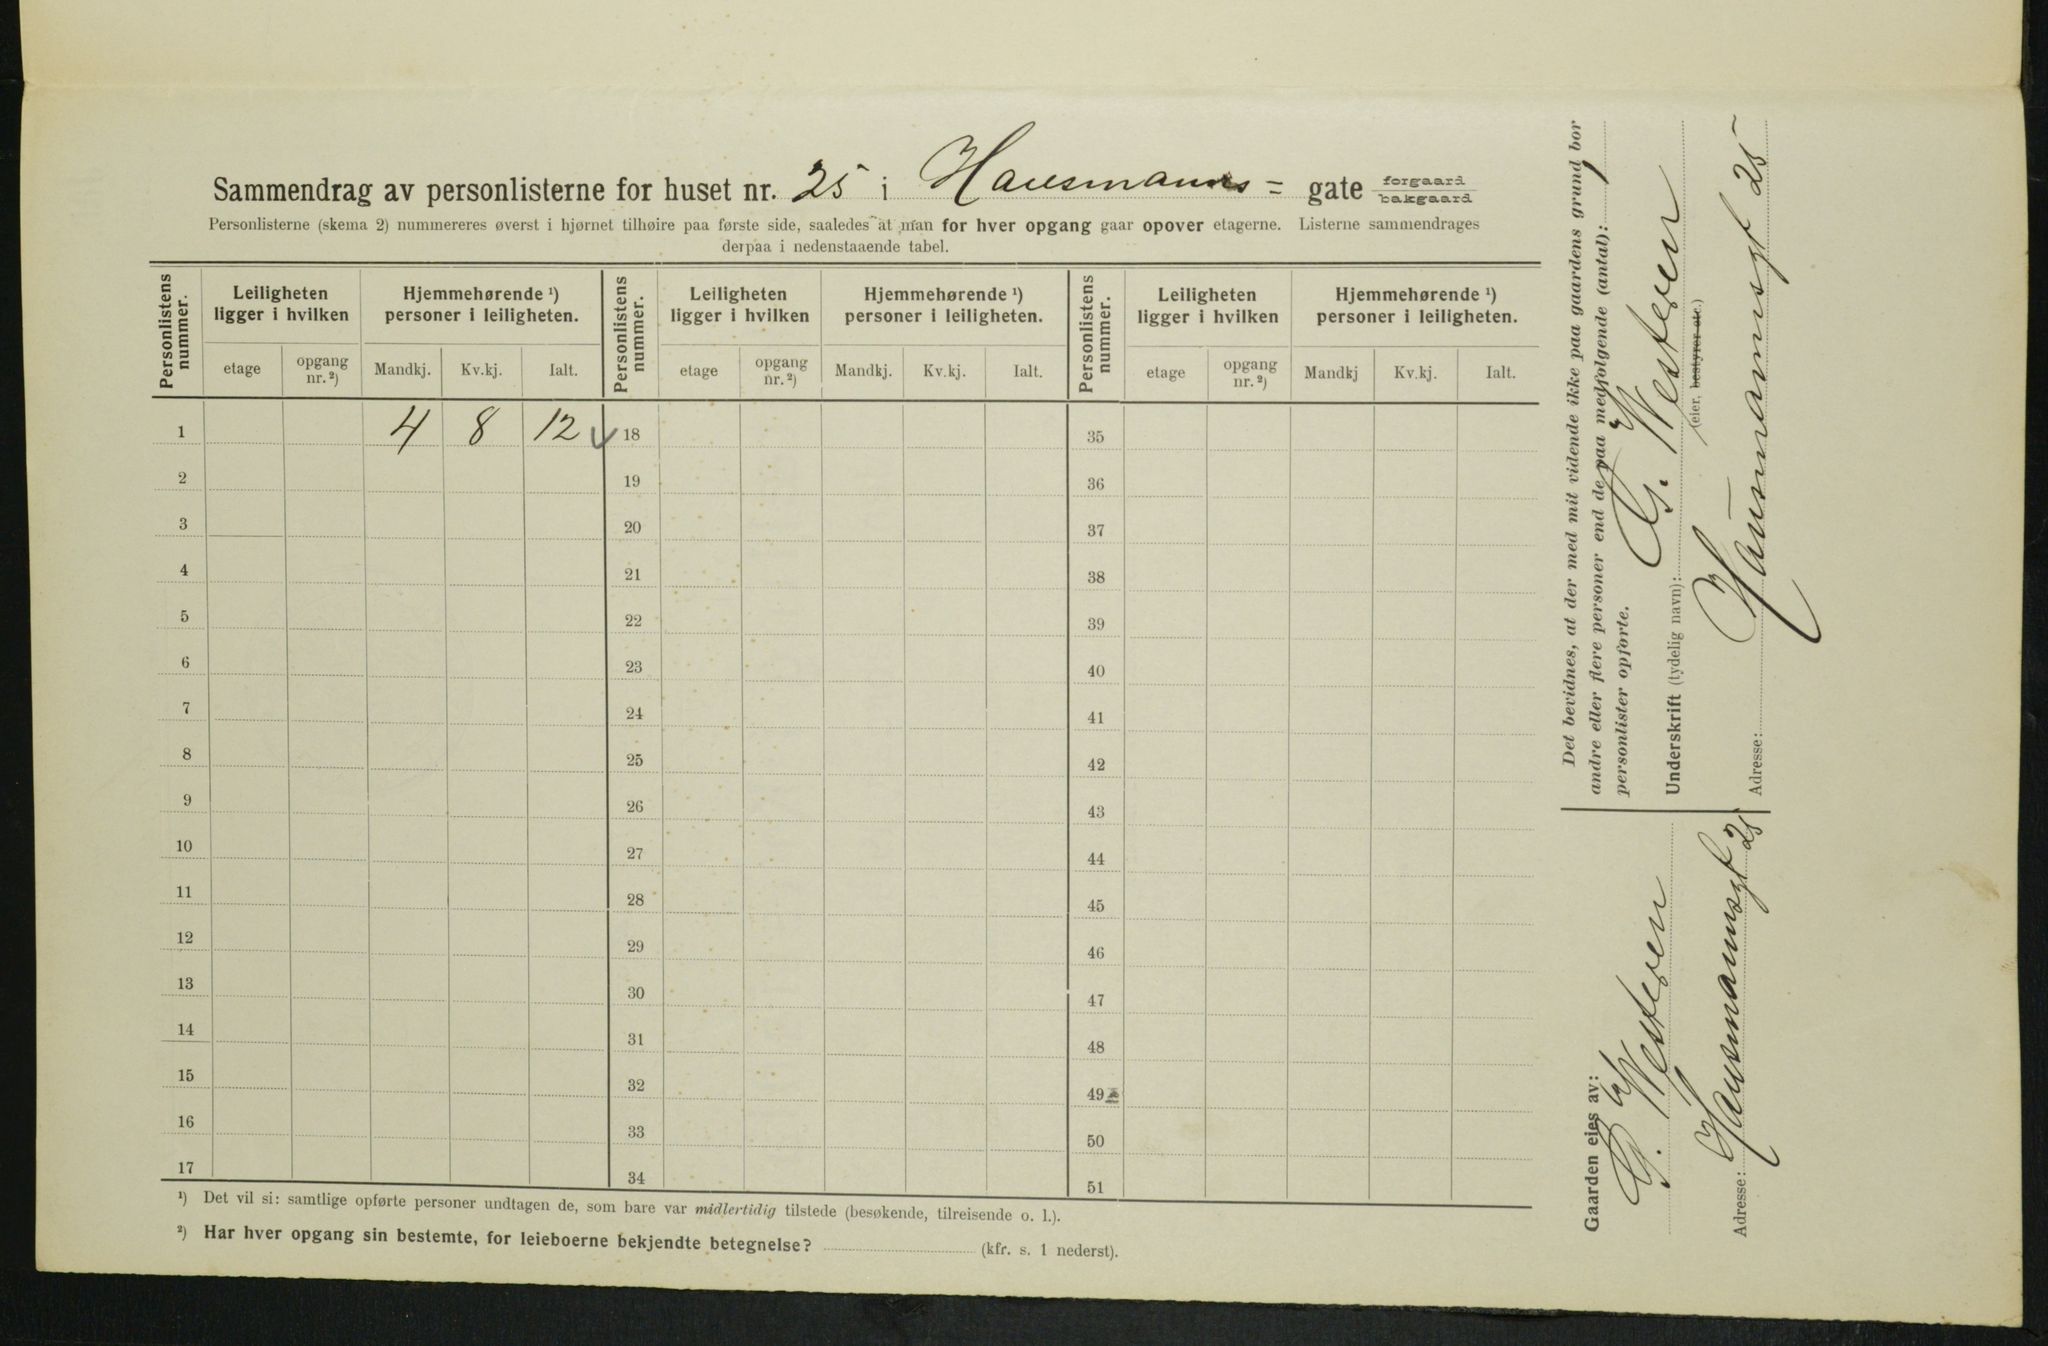 Sammendrag av personlisterne for huset nr. 25 i Hausmanns= gate forgaard bakgaard
Personlisterne (skema 2) nummereres øverst i hjørnet tilhøire paa første side, saaledes at man for hver opgang gaar opover etagerne. Listerne sammendrages
derpaa i nedenstaaende tabel.
Personlistens nummer. Leiligheten ligger i hvilken Hjemmehørende ¹) personer i leiligheten. Personlistens nummer. Leiligheten ligger i hvilken Hjemmehørende ¹) personer i leiligheten. Personlistens nummer. Leiligheten ligger i hvilken Hjemmehørende ¹) personer i leiligheten.
etage opgang nr. ²) Mandkj. Kv.kj. Ialt. etage opgang nr. ²) Mandkj. Kv.kj. Ialt. etage opgang nr. ²) Mandkj Kv.kj. Ialt.
1 4 8 12 18 35
2 19 36
3 20 37
4 21 38
5 22 39
6 23 40
7 24 41
8 25 42
9 26 43
10 27 44
11 28 45
12 29 46
13 30 47
14 31 48
15 32 49
16 33 50
17 34 51
¹) Det vil si: samtlige opførte personer undtagen de, som bare var midlertidig tilstede (besøkende, tilreisende o. l.).
²) Har hver opgang sin bestemte, for leieboerne bekjendte betegnelse? (kfr. s. 1 nederst).
Det bevidnes, at der med mit vidende ikke paa gaardens grund bor
andre eller flere personer end de paa medfølgende (antal): 1
personlister opførte.
Underskrift (tydelig navn): Westeren
(eier, bestyrer etc.)
Adresse: Hausmannsgt 25
Gaarden eies av:
Westeren
Adresse: Hausmannsgt 25